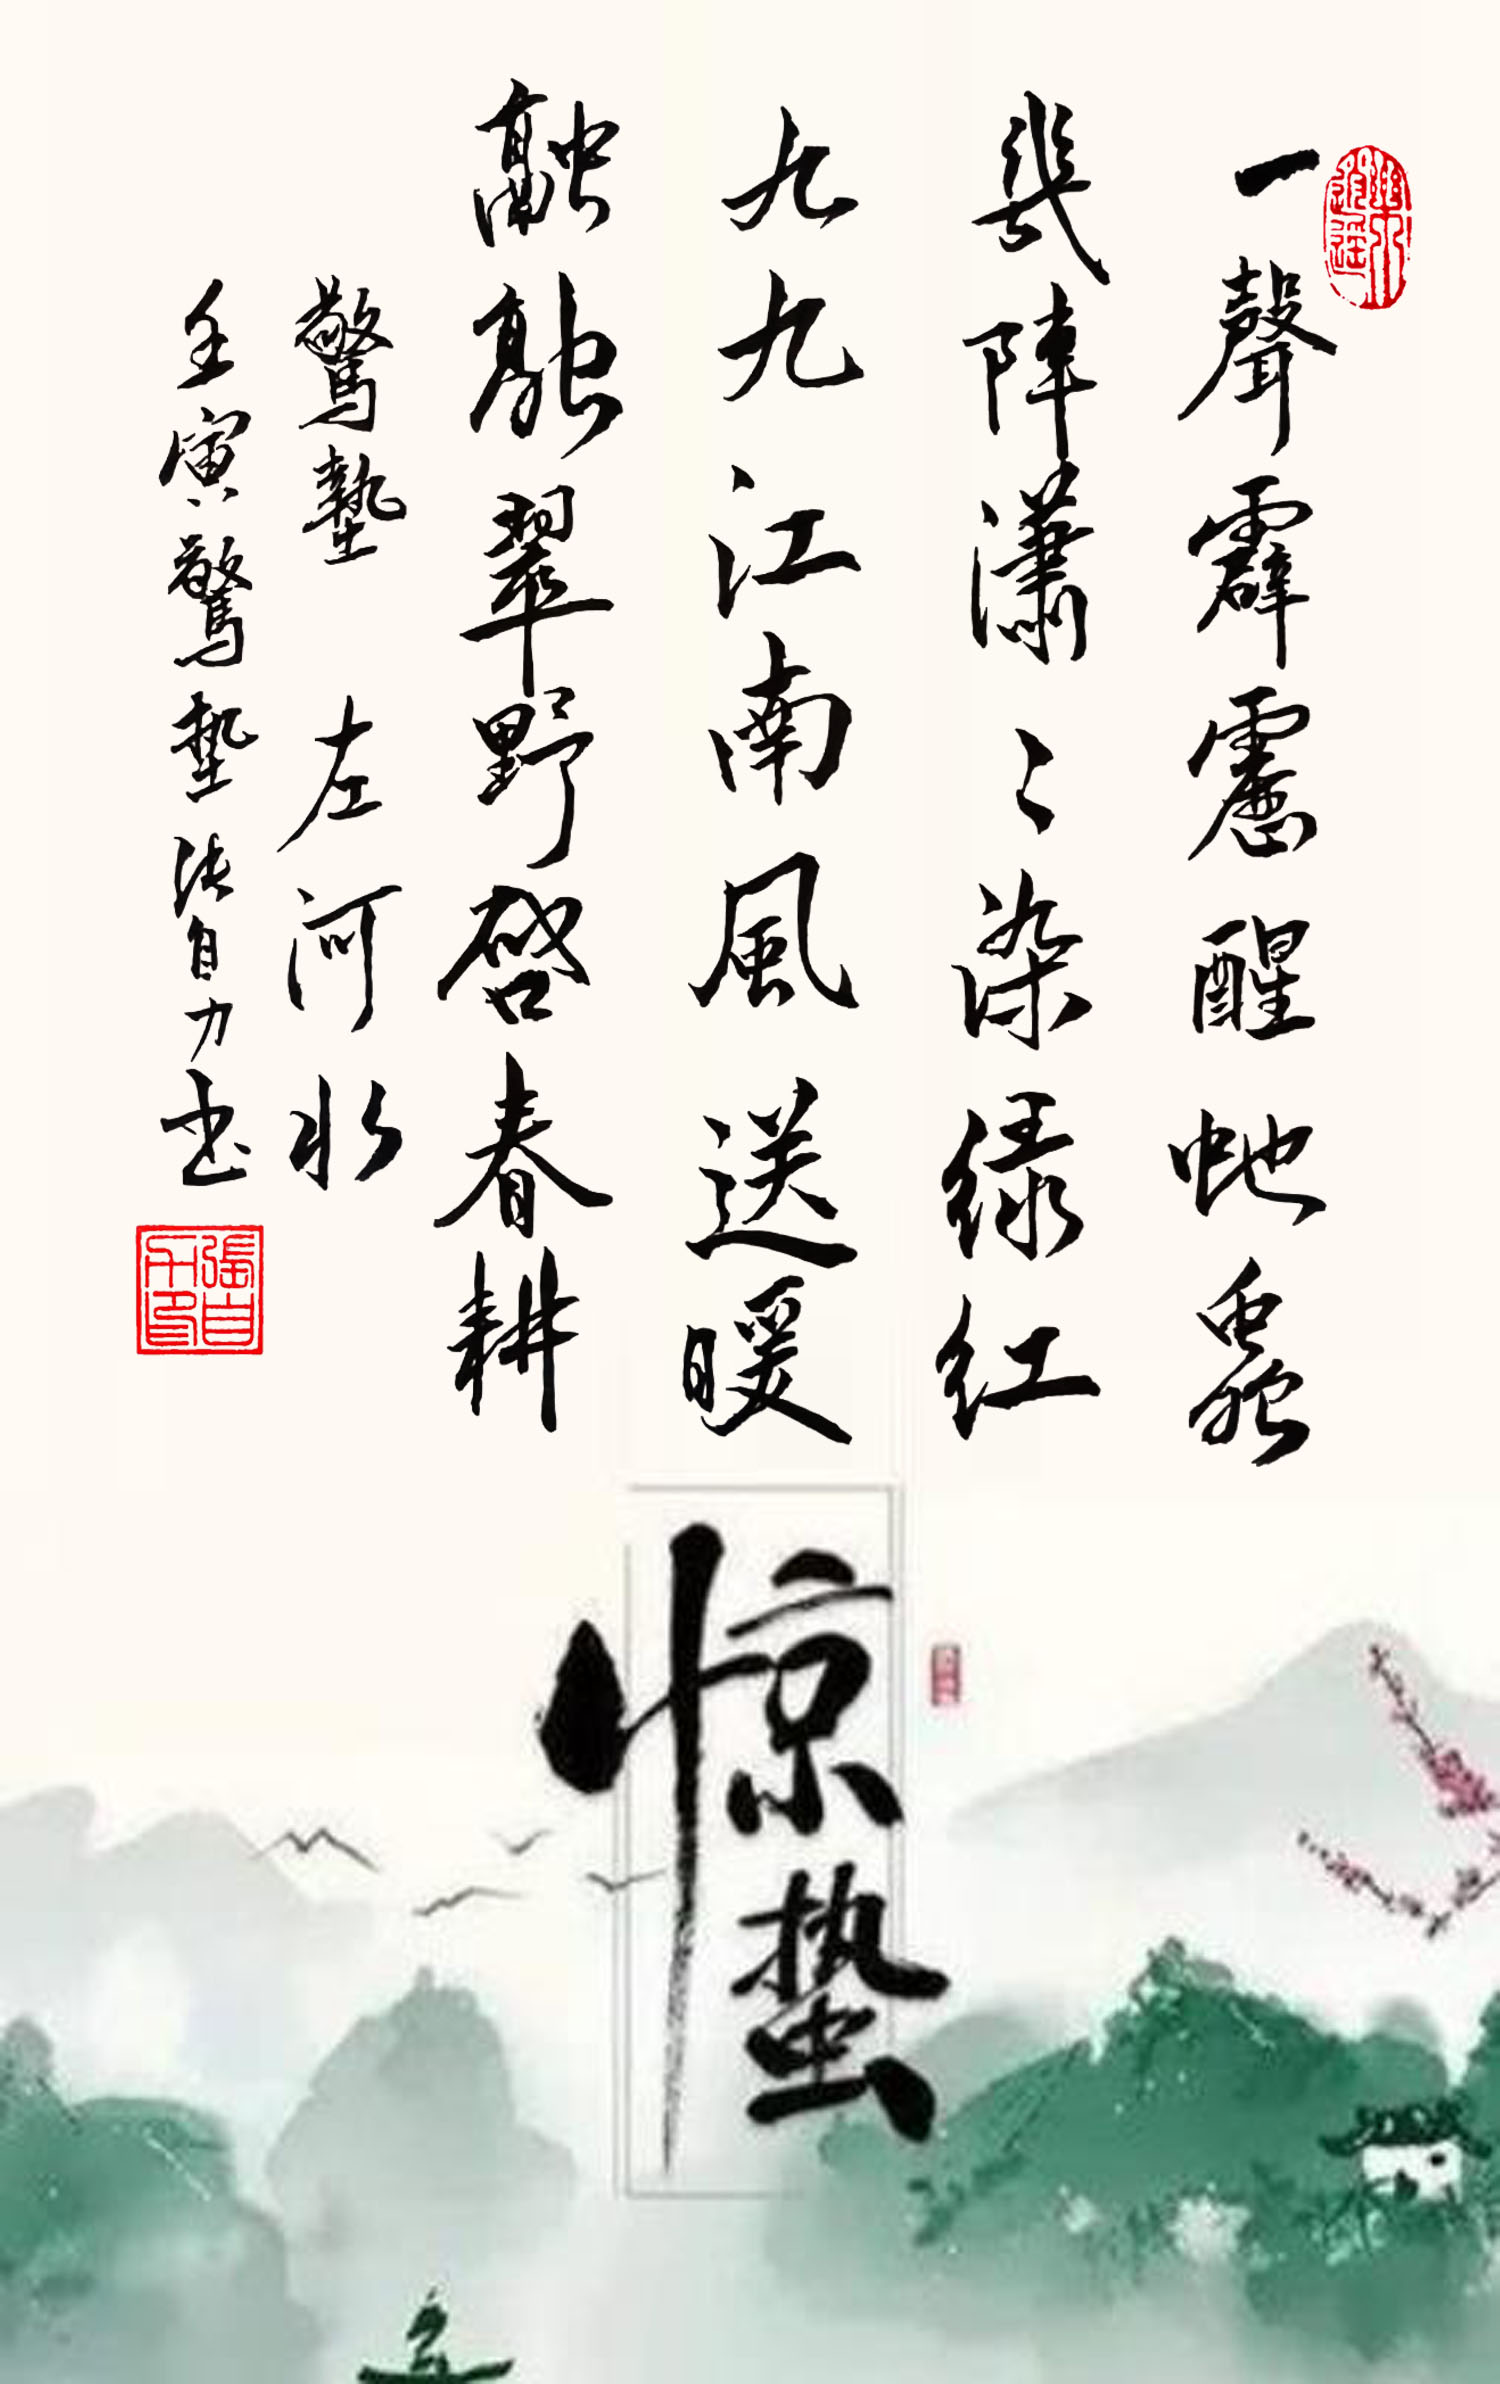 一聲霹靂醒蛇蟲
幾陣瀟〻染綠紅
九九江南風送暖
融融翠野啓春耕
驚蟄 左河水
壬寅驚蟄張自力書
張自力印
惊蛰